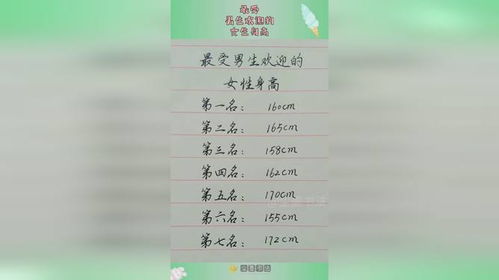 最受
男生欢迎的
女生身高
最受男生欢迎的
女性身高
第一名： 160cm
第二名： 165cm
第三名： 158cm
第四名： 162cm
第五名： 170cm
第六名： 155cm
第七名： 172cm